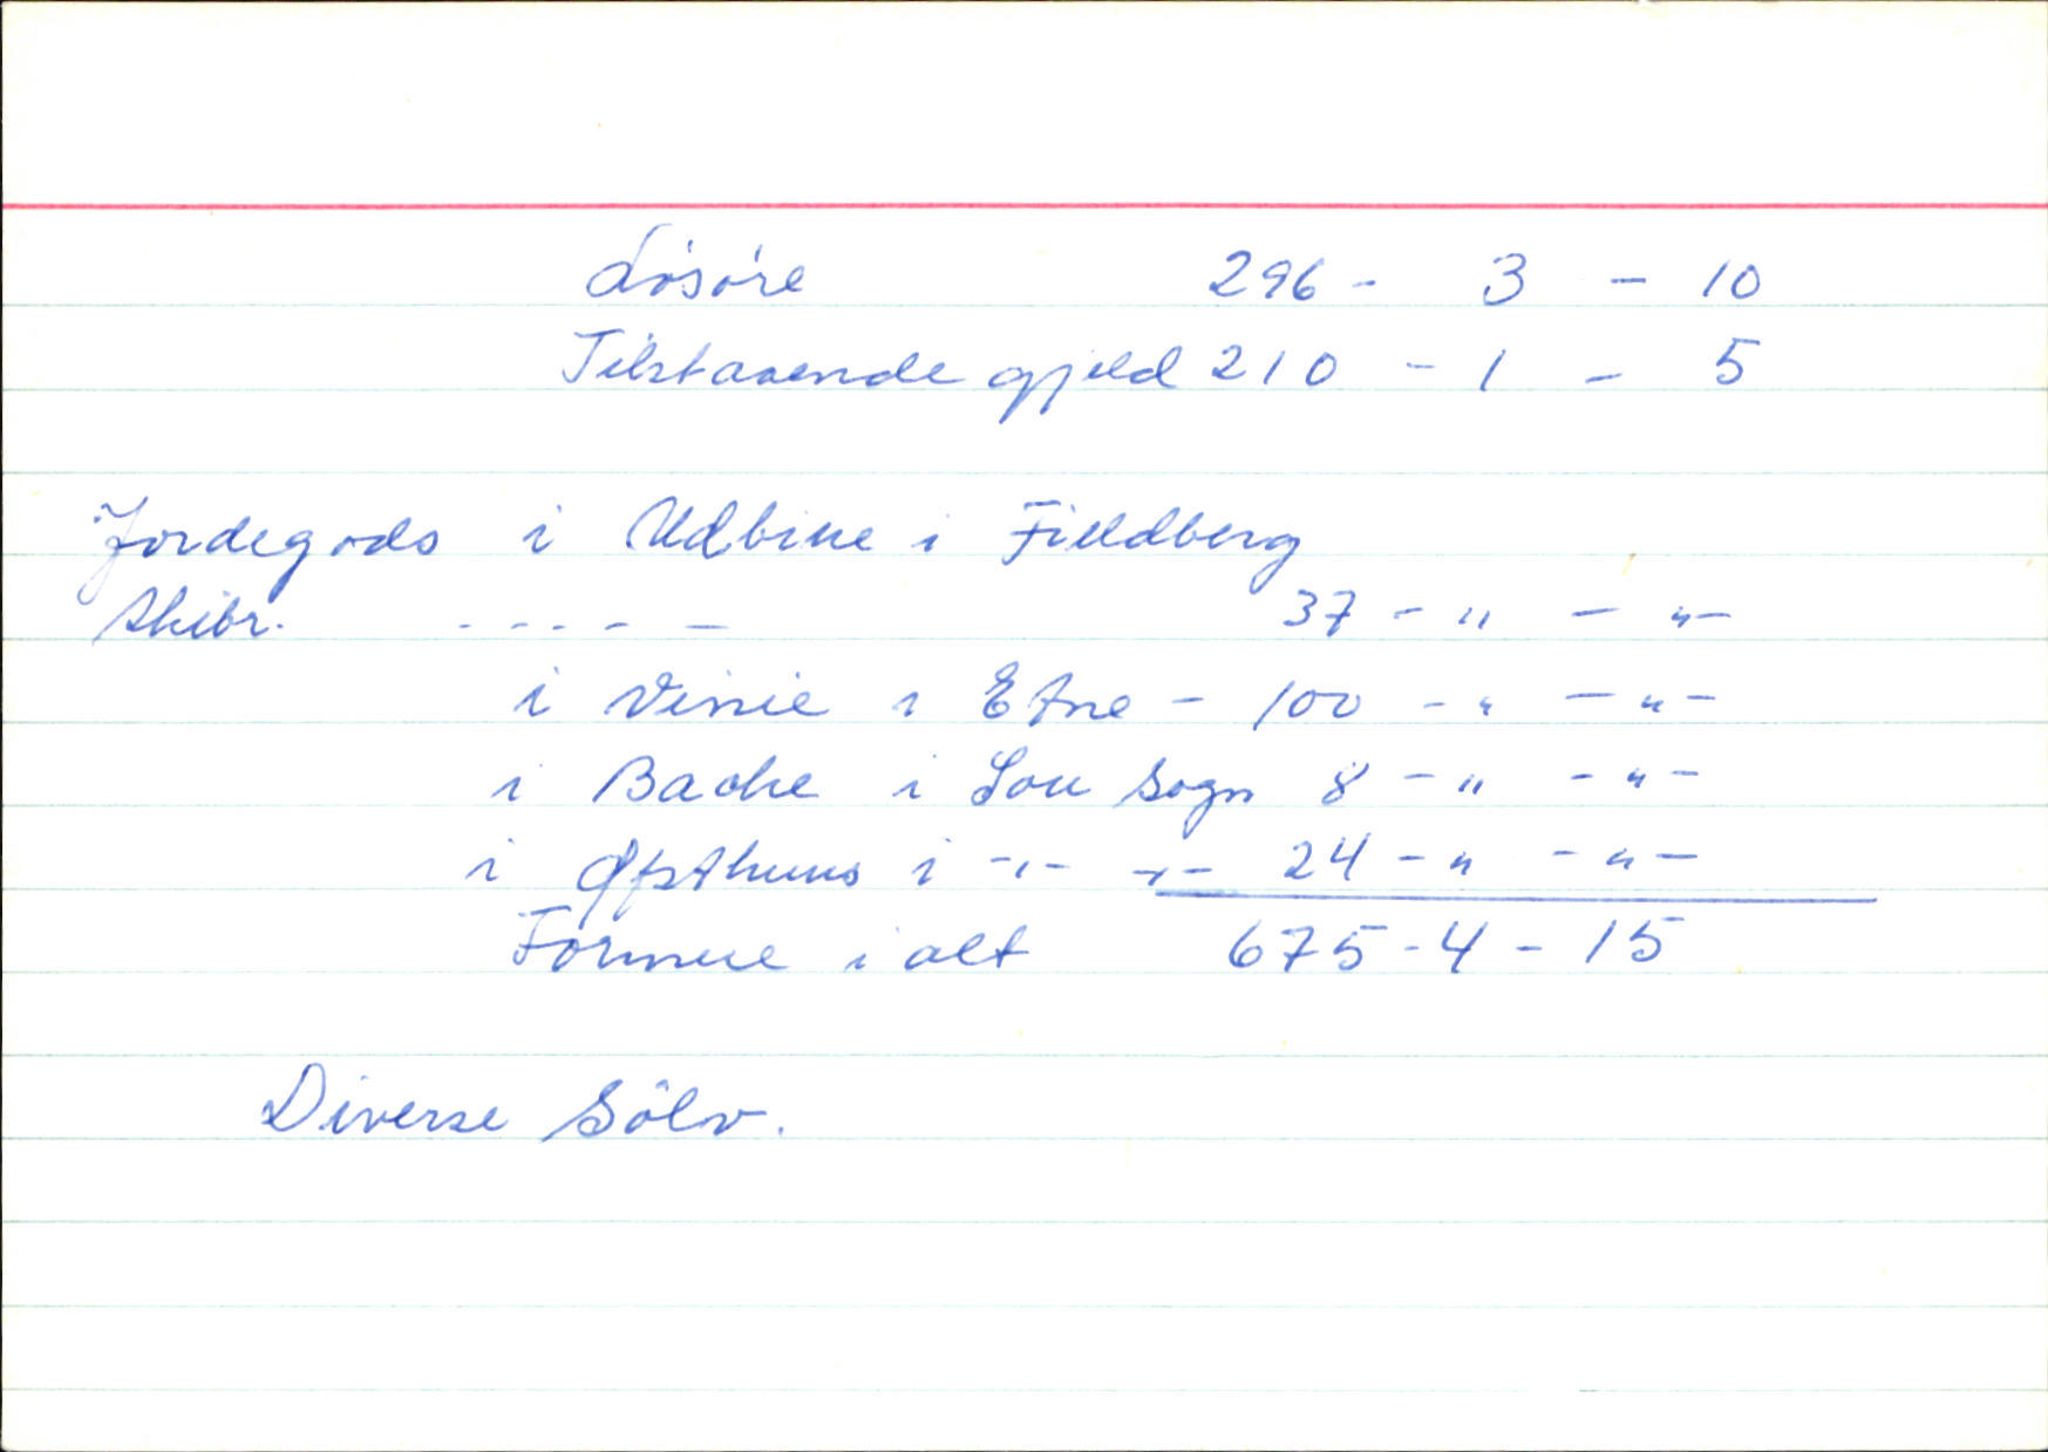 Løsøre 296 - 3 - 10
Tilstaaende gjeld 210 - 1 - 5
Jordegods i Udbiue i Fieldberg
Skibr. - - - - - 37 - " - " -
i Vinie i Etne - 100 - " - " -
i Bache i Sou sogn 8 - " - " -
i Øfsthuus i - " - - " - 24 - " - " -
Formue i alt 675 - 4 - 15
Diverse Sölv.